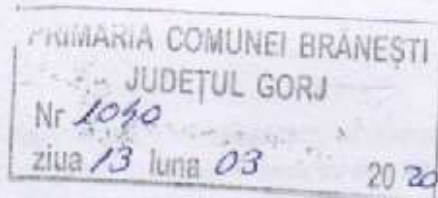 PRIMARIA COMUNEI BRANEȘTI
JUDEȚUL GORJ
Nr 1040
ziua 13 luna 03 2020